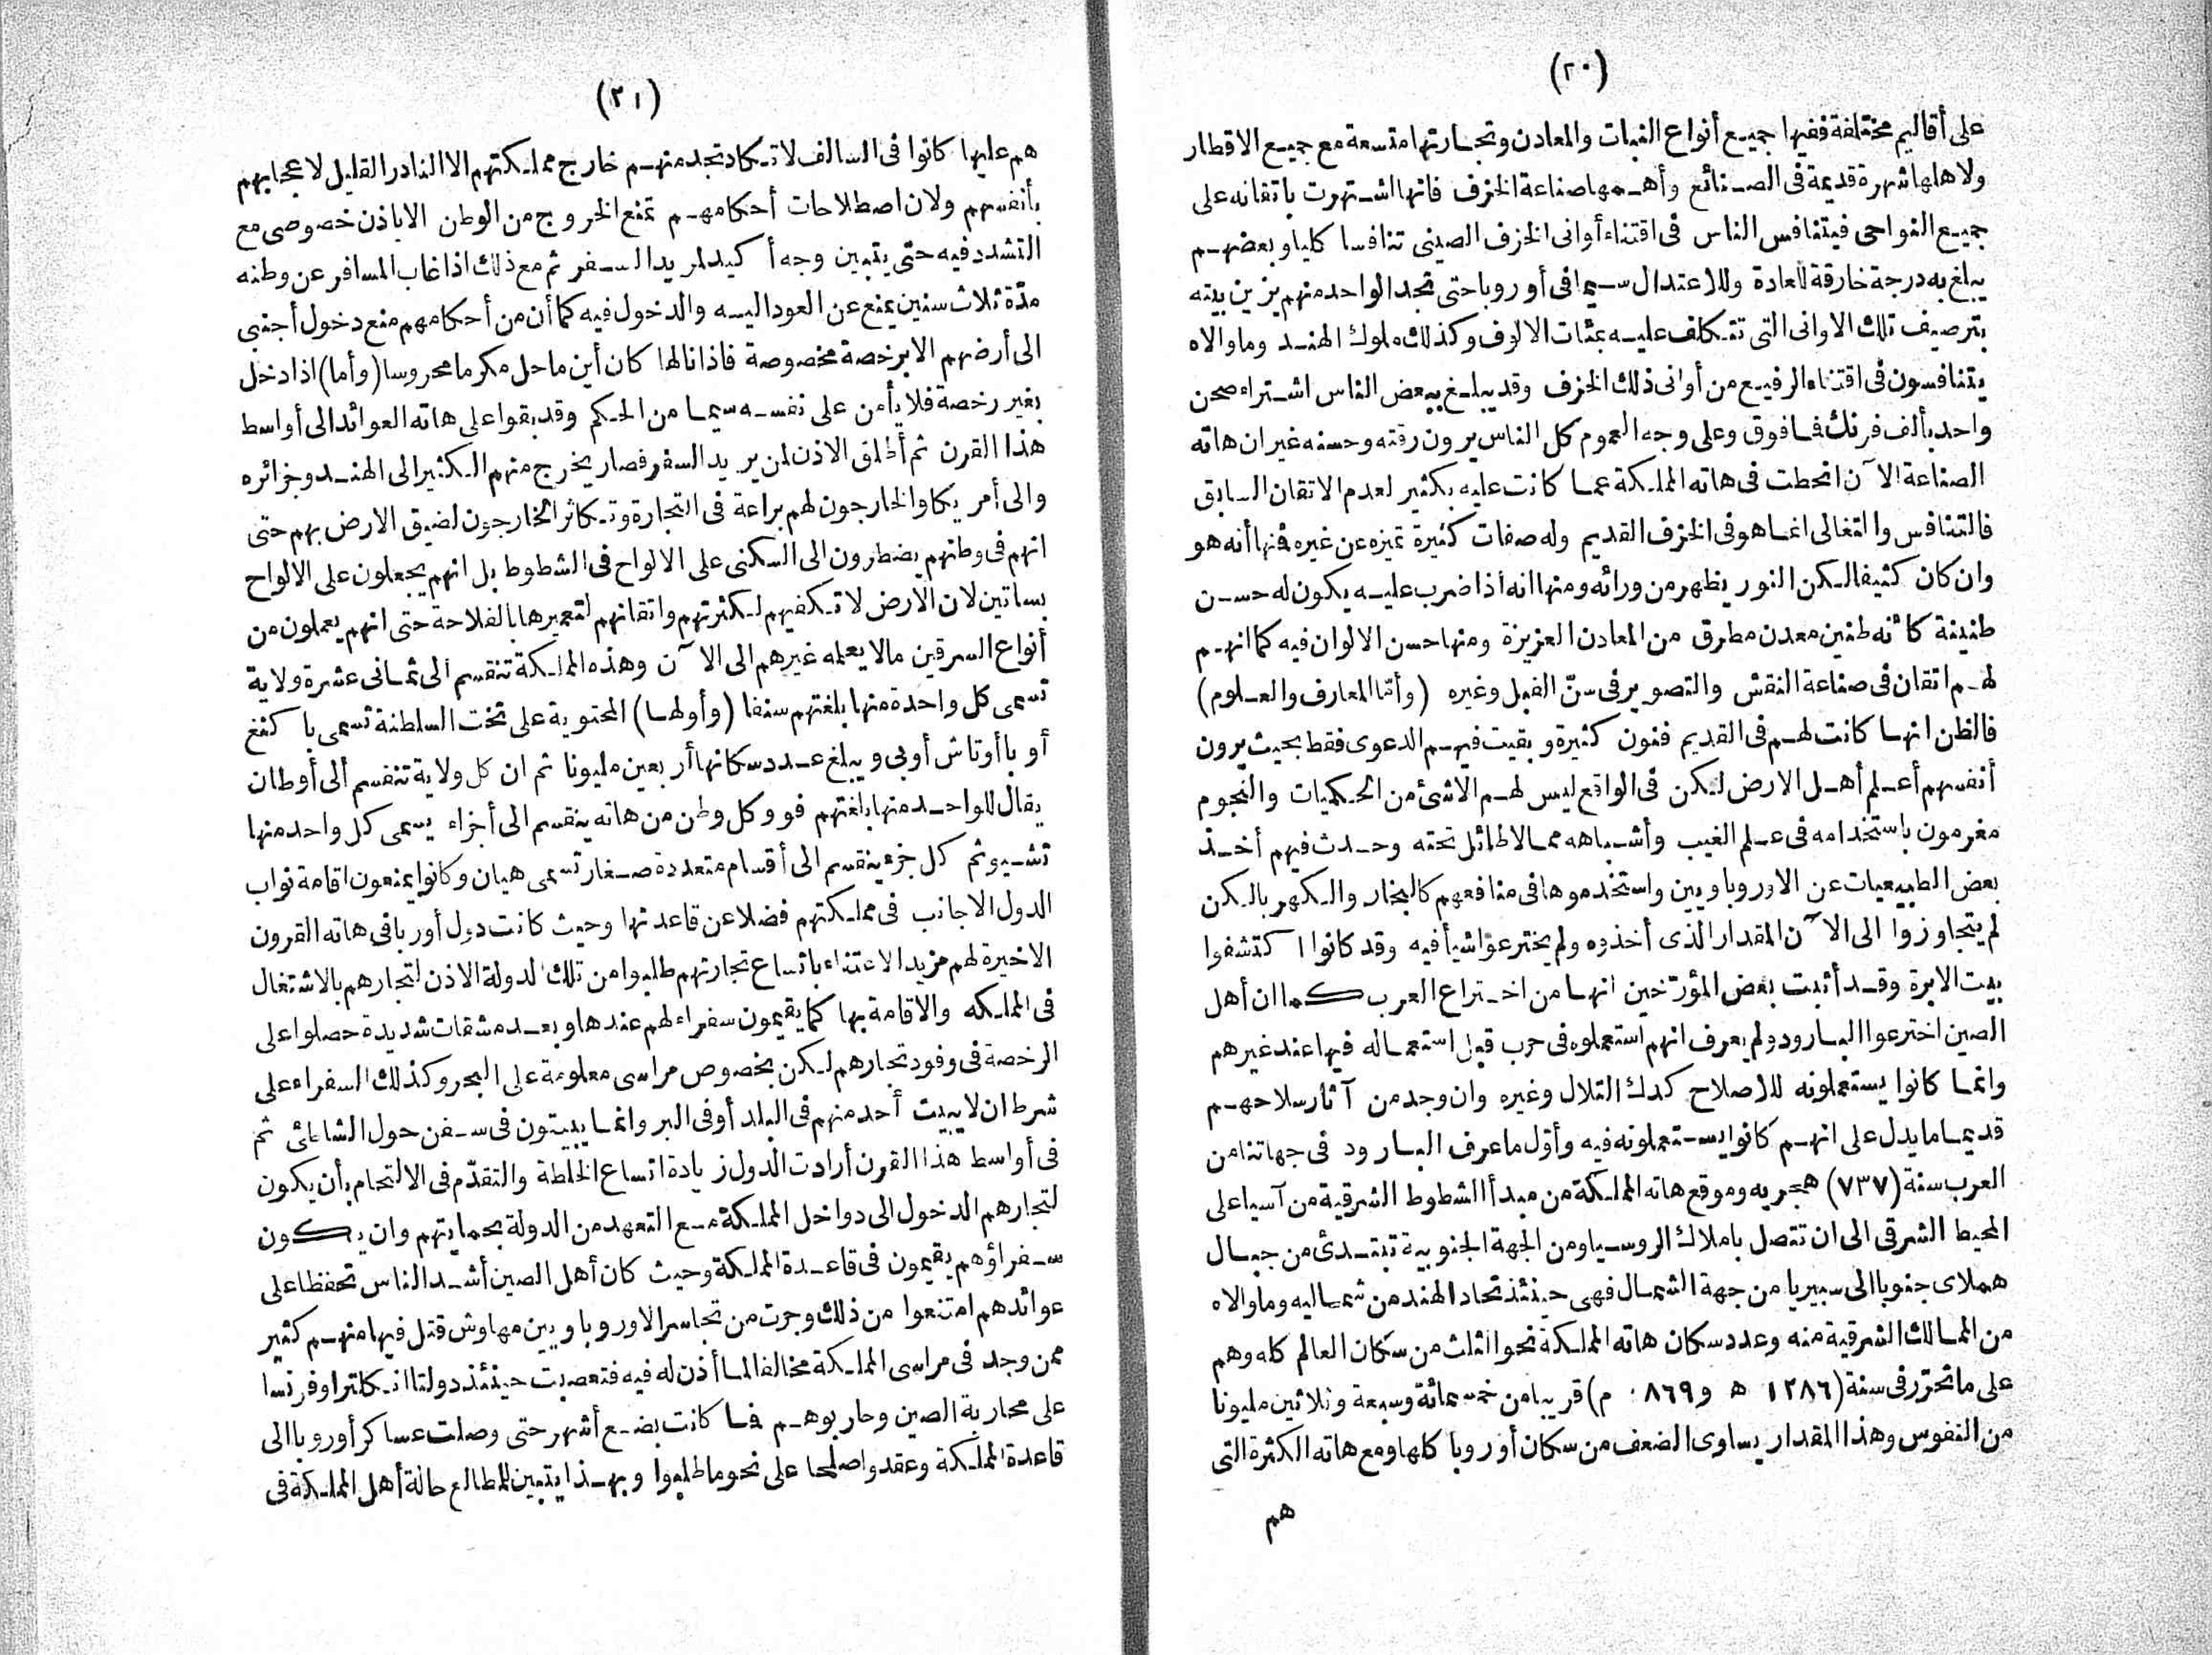 (٢٠)
على أقاليم مختلفة ففيها جميع أنواع النبات والمعادن وتجارتها متسعة مع جميع الاقطار
ولاهلها شهرة قديمة فى الصنائع وأهمها صناعة الخزف فانها اشتهرت باتقانه على
جميع النواحى فيتنافس الناس فى اقتناء أوانى الخزف الصينى تنافسا كليا وبعضهم
يبلغ به درجة خارقة للعادة وللاعتدال سيما فى أوروبا حتى تجد الواحد منهم يزين بيته
بترصيف تلك الاوانى التى تتكلف عليه بمئات الالوف وكذلك ملوك الهند وما والاه
يتنافسون فى اقتناء الرفيع من أوانى ذلك الخزف وقد يبلغ ببعض الناس اشتراء صحن
واحد بألف فرنك فما فوق وعلى وجه العموم كل الناس يرون رقته وحسنه غير ان هاته
الصناعة الآن انحطت فى هاته المملكة عما كانت عليه بكثير لعدم الاتقان السابق
فالتنافس والتغالى انما هو فى الخزف القديم وله صفات كثيرة تميزه عن غيره فمنها أنه هو
وان كان كثيفا لكن النور يظهر من ورائه ومنها انه اذا ضرب عليه يكون له حسن
طنينة كأنه طنين معدن مطرق من المعادن العزيزة ومنها حسن الالوان فيه كما انهم
لهم اتقان فى صناعة النقش والتصوير فى سنّ الفيل وغيره (وأمّا المعارف والعلوم)
فالظن انها كانت لهم فى القديم فنون كثيرة وبقيت فيهم الدعوى فقط بحيث يرون
أنفسهم أعلم أهل الارض لكن فى الواقع ليس لهم الا شئ من الحكميات والنجوم
مغرمون باستخدامه فى علم الغيب وأشباهه مما لا طائل تحته وحدث فيهم أخذ
بعض الطبيعيات عن الاوروباويين واستخدموها فى منافعهم كالبخار والكهربا لكن
لم يتجاوزوا الى الآن المقدار الذى أخذوه ولم يخترعوا شيأ فيه وقد كانوا اكتشفوا
بيت الابرة وقد أثبت بعض المؤرّخين انها من اختراع العرب كما ان أهل
الصين اخترعوا البارود ولم يعرف انهم استعملوه فى حرب قبل استعماله فيها عند غيرهم
وانما كانوا يستعملونه للاصلاح كدك التلال وغيره وان وجد من آثار سلاحهم
قديما ما يدل على انهم كانوا يستعملونه فيه وأوّل ما عرف البارود فى جهاتنا من
العرب سنة (٧٣٧) هجريه وموقع هاته المملكة من مبدأ الشطوط الشرقية من آسيا على
المحيط الشرقى الى ان تتصل باملاك الروسيا ومن الجهة الجنوبية تبتدئ من جبال
هملاى جنوبا الى سبيريا من جهة الشمال فهى حينئذ تحاد الهند من شماليه وما والاه
من الممالك الشرقية منه وعدد سكان هاته المملكة نحو الثلث من سكان العالم كله وهم
على ما تحرّر فى سنة (١٢٨٦ ه و ٨٦٩ م) قريبا من خمسمائة وسبعة وثلاثين مليونا
من النفوس وهذا المقدار يساوى الضعف من سكان أوروبا كلها ومع هاته الكثرة التى
هم
(٢١)
هم عليها كانوا فى السالف لا تكاد تجد منهم خارج مملكتهم الا النادر القليل لاعجابهم
بأنفسهم ولان اصطلاحات أحكامهم تمنع الخروج من الوطن الا باذن خصوصى مع
التشدد فيه حتى يتبين وجه أكيد لمريد السفر ثم مع ذلك اذا غاب المسافر عن وطنه
مدّة ثلاث سنين يمنع عن العود اليه والدخول فيه كما أن من أحكامهم منع دخول أجنبى
الى أرضهم الا برخصة مخصوصة فاذا نالها كان أين ما حل مكرما محروسا (وأما) اذا دخل
بغير رخصة فلا يأمن على نفسه سيما من الحكم وقد بقوا على هاته العوائد الى أواسط
هذا القرن ثم أطلق الاذن لمن يريد السفر فصار يخرج منهم الكثير الى الهند وجزائره
والى أمريكا والخارجون لهم براعة فى التجارة وتكاثر الخارجون لضيق الارض بهم حتى
انهم فى وطنهم يضطرون الى السكنى على الالواح فى الشطوط بل انهم يجعلون على الالواح
بساتين لان الارض لا تكفيهم لكثرتهم واتقانهم لتعميرها بالفلاحة حتى انهم يعملون من
أنواع السرقين مالا يعلمه غيرهم الى الآن وهذه المملكة تنقسم الى ثمانى عشرة ولاية
تسمى كل واحدة منها بلغتهم سنفا (وأولها) المحتوية على تخت السلطنة تسمى با كنغ
أو باأوتاش أوبى ويبلغ عدد سكانها أربعين مليونا ثم ان كل ولاية تنقسم الى أوطان
يقال للواحد منها بلغتهم فو وكل وطن من هاته ينقسم الى أجزاء يسمى كل واحد منها
تشيو ثم كل جزء ينقسم الى أقسام متعددة صغار تسمى هيان وكانوا يمنعون اقامة نواب
الدول الاجانب فى مملكتهم فضلا عن قاعدتها وحيث كانت دول أوربا فى هاته القرون
الاخيرة لهم مزيد الاعتناء باتساع تجارتهم طلبوا من تلك الدولة الاذن لتجارهم بالاشتغال
فى المملكه والاقامة بها كما يقيمون سفراء لهم عندها وبعد مشقات شديدة حصلوا على
الرخصة فى وفود تجارهم لكن بخصوص مراسى معلومة على البحر وكذلك السفراء على
شرط ان لا يبيت أحد منهم فى البلد أو فى البر وانما يبيتون فى سفن حول الشاطئ ثم
فى أواسط هذا القرن أرادت الدول زيادة اتساع الخلطة والتقدّم فى الالتحام بأن يكون
لتجارهم الدخول الى دواخل المملكة مع التعهد من الدولة بحمايتهم وان يكون
سفراؤهم يقيمون فى قاعدة المملكة وحيث كان أهل الصين أشد الناس تحفظا على
عوائدهم امتنعوا من ذلك وجرت من تجاسر الاوروباويين مهاوش قتل فيها منهم كثير
ممن وجد فى مراسى المملكة مخالفا لما أذن له فيه فتعصبت حينئذ دولتا انكلترا وفرنسا
على محاربة الصين وحاربوهم فما كانت بضع أشهر حتى وصلت عساكر أوروبا الى
قاعدة المملكة وعقدوا صلحا على نحو ما طلبوا وبهذا يتبين للمطالع حالة أهل المملكة فى